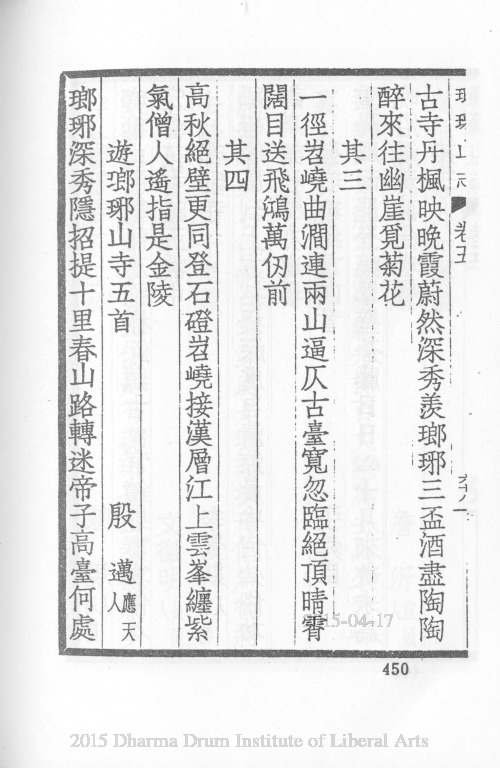 瑯琊山志 卷五 六八
古寺丹楓映晚霞蔚然深秀羨瑯琊三盃酒盡陶陶
醉來往幽崖覓菊花
其三
一徑岧嶢曲澗連兩山逼仄古臺寬忽臨絕頂晴霄
闊目送飛鴻萬仞前
其四
高秋絕壁更同登石磴岧嶢接漢層江上雲峯纏紫
氣僧人遙指是金陵
遊瑯琊山寺五首 殷邁 應天人
瑯琊深秀隱招提十里春山路轉迷帝子高臺何處
2015-04-17
450
2015 Dharma Drum Institute of Liberal Arts